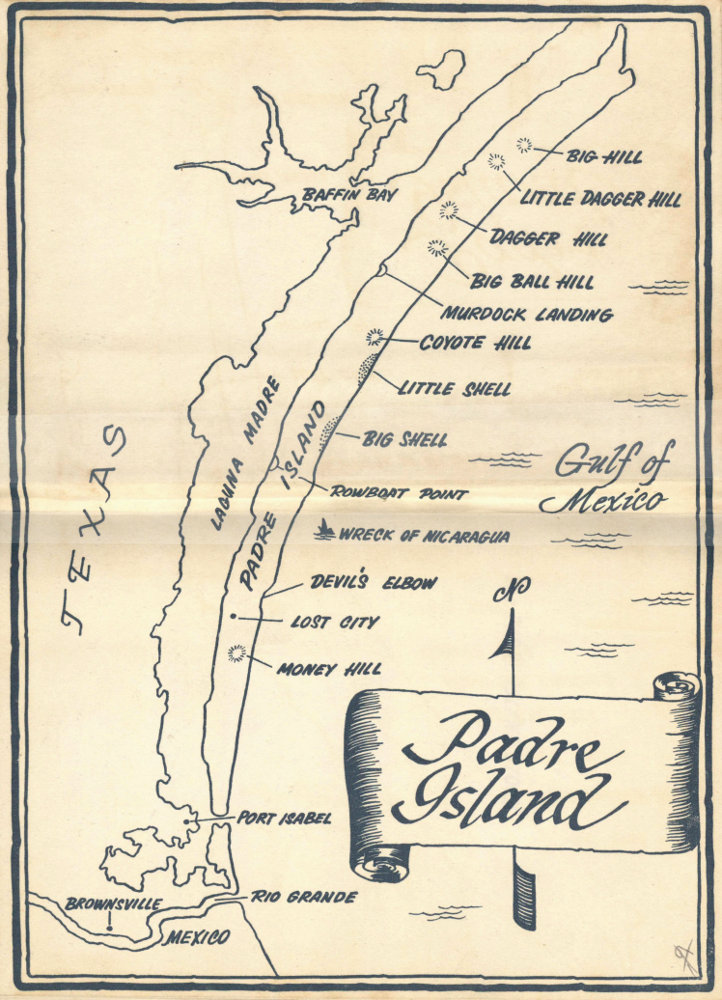 BIG HILL
LITTLE DAGGER HILL
BAFFIN BAY
DAGGER HILL
BIG BALL HILL
MURDOCK LANDING
COYOTE HILL
LITTLE SHELL
LAGUNA MADRE
PADRE ISLAND
BIG SHELL
TEXAS
Gulf of
Mexico
ROWBOAT POINT
WRECK OF NICARAGUA
DEVIL'S ELBOW
N
LOST CITY
MONEY HILL
Padre
Island
PORT ISABEL
RIO GRANDE
BROWNSVILLE
MEXICO